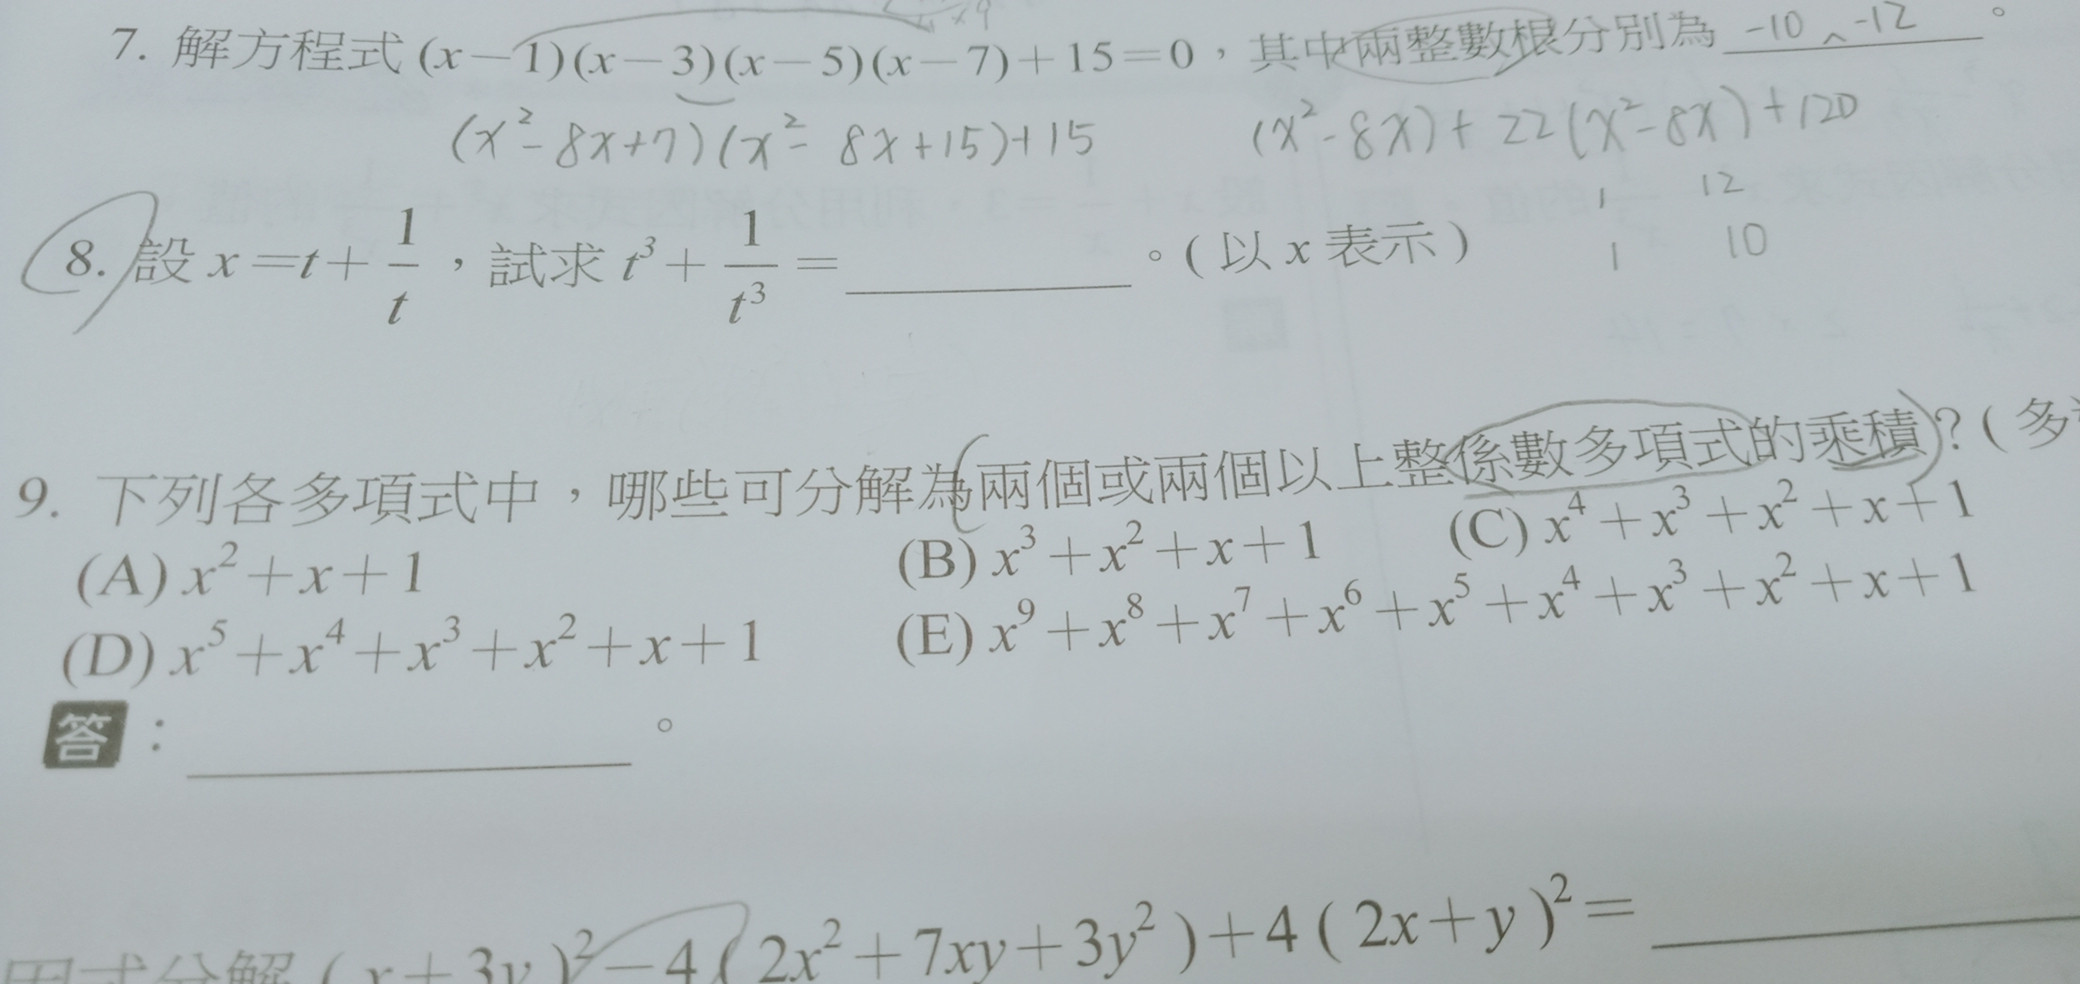 7. 解方程式 (x−1)(x−3)(x−5)(x−7)+15=0，其中兩整數根分別為 -10、-12 。
(x²-8x+7)(x²-8x+15)+15  (x²-8x)+22(x²-8x)+120
1 12
1 10
8. 設 x=t+1/t，試求 t³+1/t³=________。(以 x 表示)
9. 下列各多項式中，哪些可分解為兩個或兩個以上整係數多項式的乘積?(多
(A) x²+x+1 (B) x³+x²+x+1 (C) x⁴+x³+x²+x+1
(D) x⁵+x⁴+x³+x²+x+1 (E) x⁹+x⁸+x⁷+x⁶+x⁵+x⁴+x³+x²+x+1
答：________。
因式分解 (x+3y)²−4(2x²+7xy+3y²)+4(2x+y)²=________